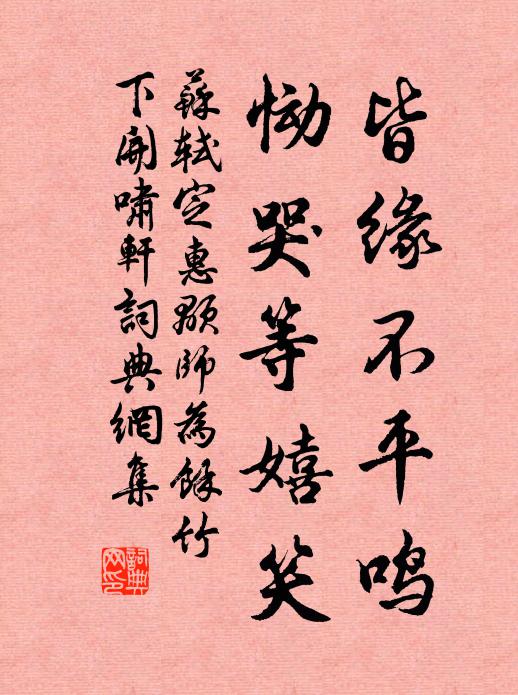 皆緣不平鳴
慟哭等嬉笑
蘇軾定惠顒師為餘竹
下開嘯軒詞典網集
詞典網印